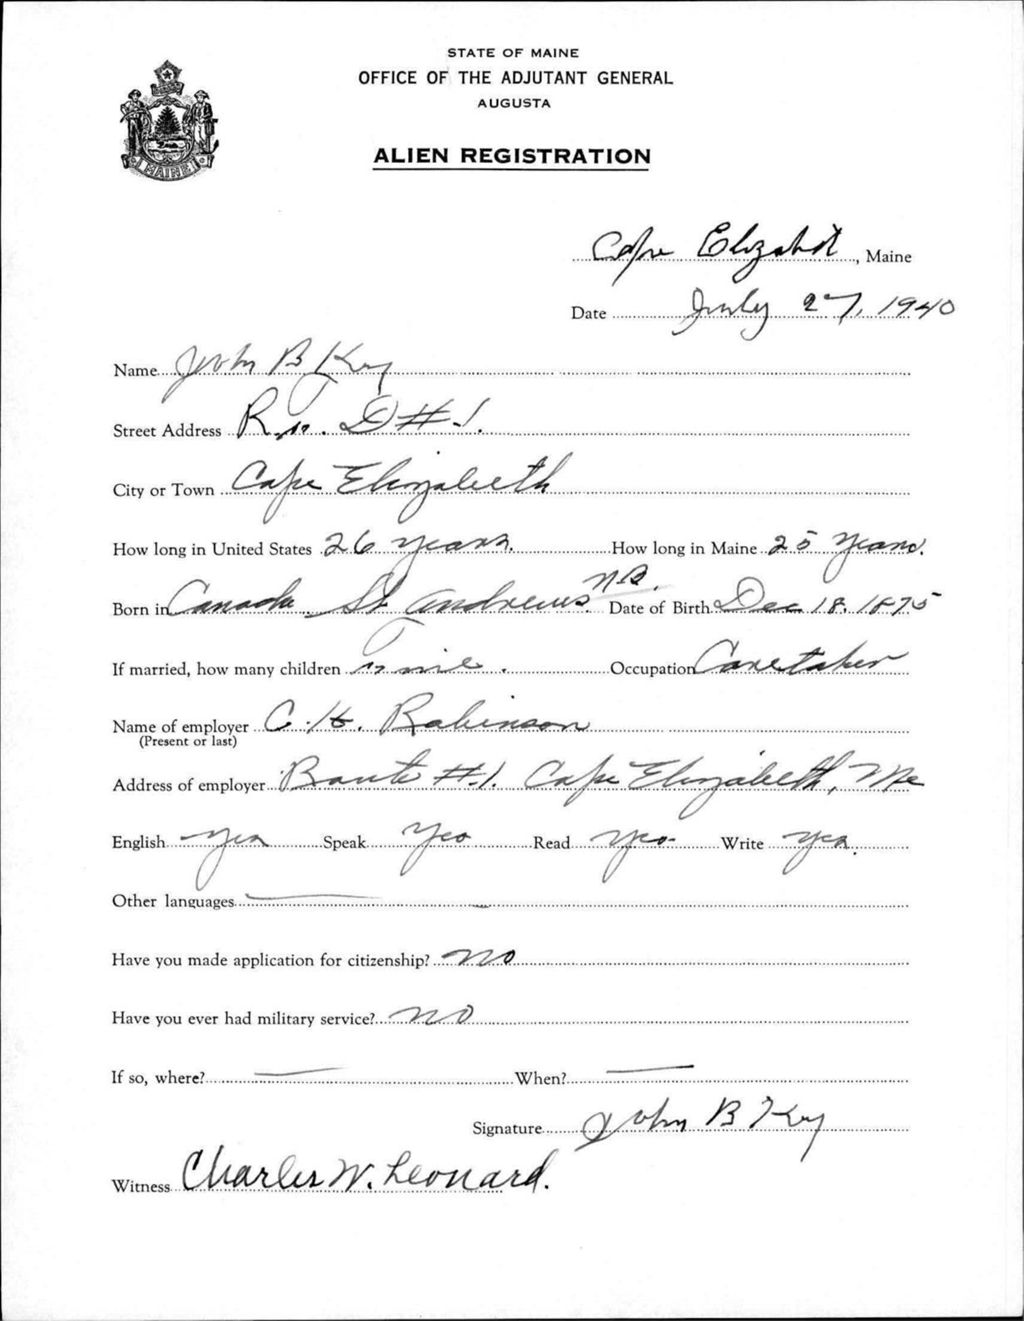 STATE OF MAINE
OFFICE OF THE ADJUTANT GENERAL
AUGUSTA
MAINE
ALIEN REGISTRATION
Cape Elizabeth, Maine
Date July 27, 1940
Name John B Key
Street Address R. D #1.
City or Town Cape Elizabeth
How long in United States 26 years. How long in Maine 25 Years.
Born in Canada St Andrews N.B. Date of Birth Dec 18. 1875
If married, how many children Occupation Caretaker
Name of employer C. H. Robinson
(Present or last)
Address of employer Route #1. Cape Elizabeth, Me
English yes Speak Yes Read Yes Write yes.
Other languages —
Have you made application for citizenship? no
Have you ever had military service? no
If so, where? — When? —
Signature John B Key
Witness Charles W. Leonard.